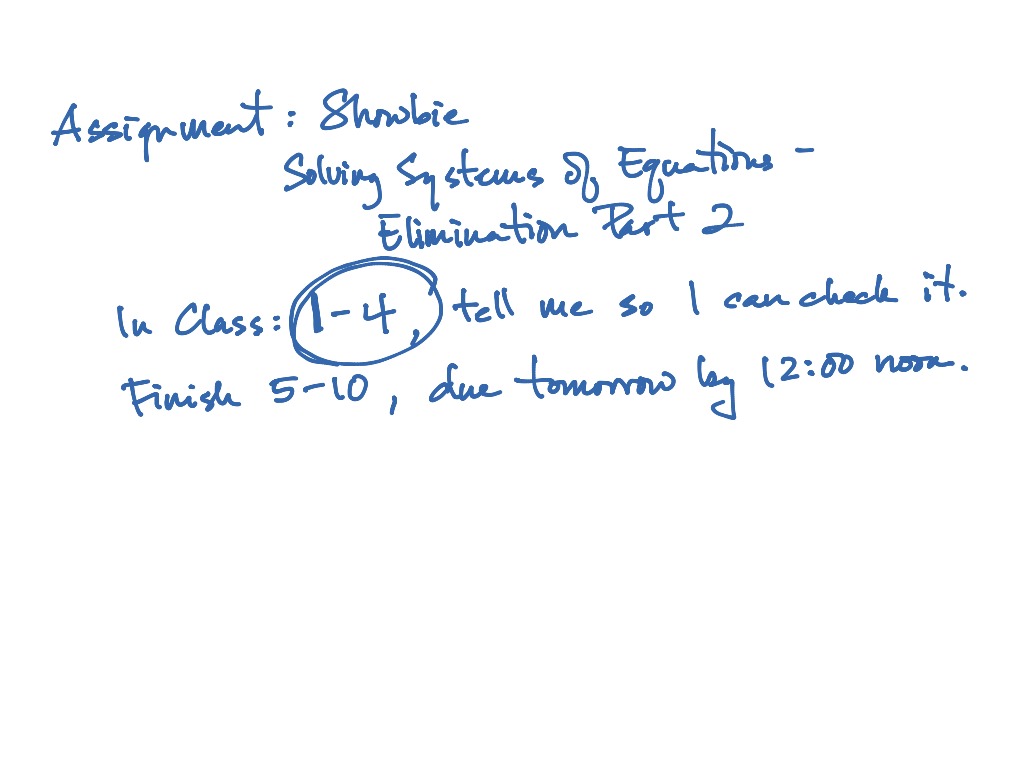 Assignment: Showbie
Solving Systems of Equations -
Elimination Part 2
In Class: 1-4, tell me so I can check it.
Finish 5-10, due tomorrow by 12:00 noon.